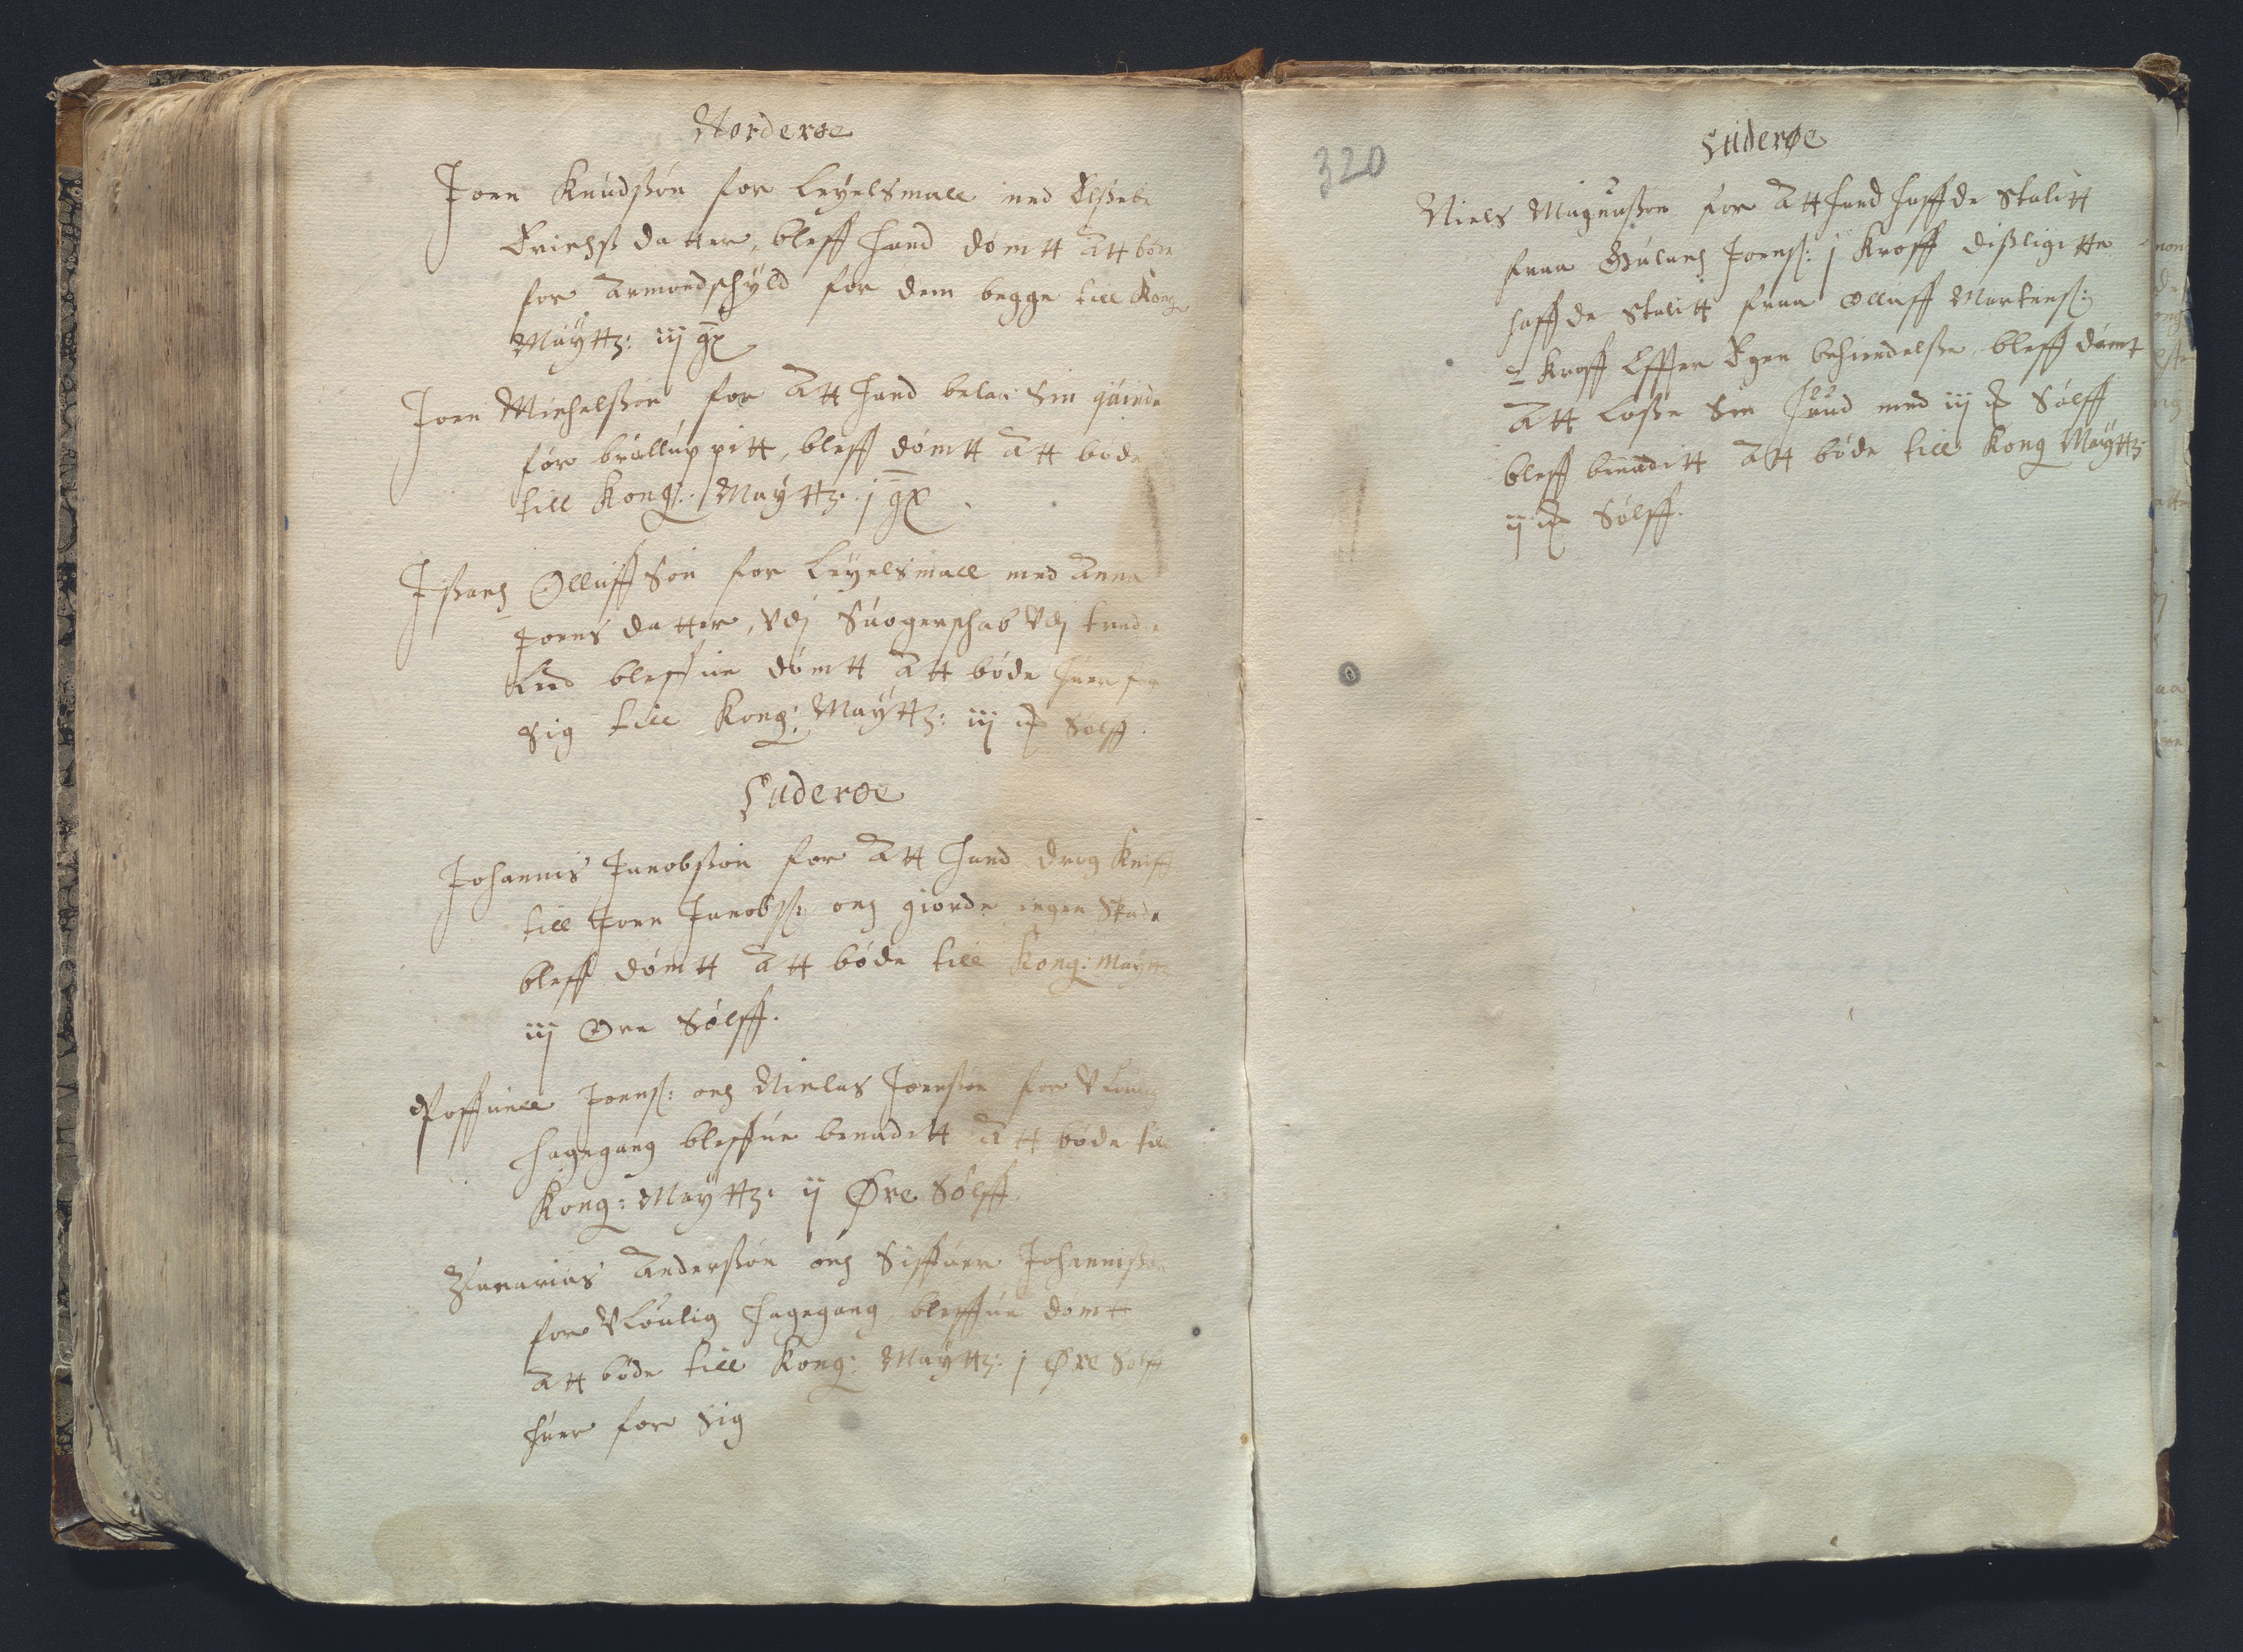 Norderøe
Joen Knudßøn for Leyelsmall med Elßebe
Erichß datter, bleff hand dømtt att bøde
for armondschyld for dem begge till Kong
Mayttz: iij gx
Joen Michelßøn for att hand belaa Sin quinde
før brølluppitt, bleff dømtt att bøde
till Kong: Mayttz: j gx.
Jßach Olluffsøn for Leyelsmall med Anna
Joensdatter, Vdj Suogerschab Vdj tredie
Leed bleffue dømtt att bøde huer for
Sig till Kong: Mayttz: iij Sølff.
Suderøe
Johannis Jacobßøn for att hand drog Kniff
till Joen Jacobß: och giorde ingen Skade
bleff dømtt att bøde till Kong: Maytt
iij Øre Sølff.
Poffuell Joenß: och Niclas Joenßøn for Vloulig
hagegang bleffue benaditt att bøde till
Kong: Mayttz: ij Øre Sølff.
Zacarias Anderßøn och Siffuer Johannißøn
for Vloulig hagegang bleffue dømtt
att bøde till Kong: Mayttz: j Øre Sølff
huer for Sig
320
Suderøe
Niels Magnußøn for att hand haffde Stalitt
fraa Joenß: j Kroff dißligitte
haffde Stalitt fraa Olluff Martenß:
2 Kroff Effter Egen bekiendelße, bleff dømt
att Løße Sin Huud med iij Sølff
bleff benaditt att bøde till Kong Mayttz:
ij Sølff.